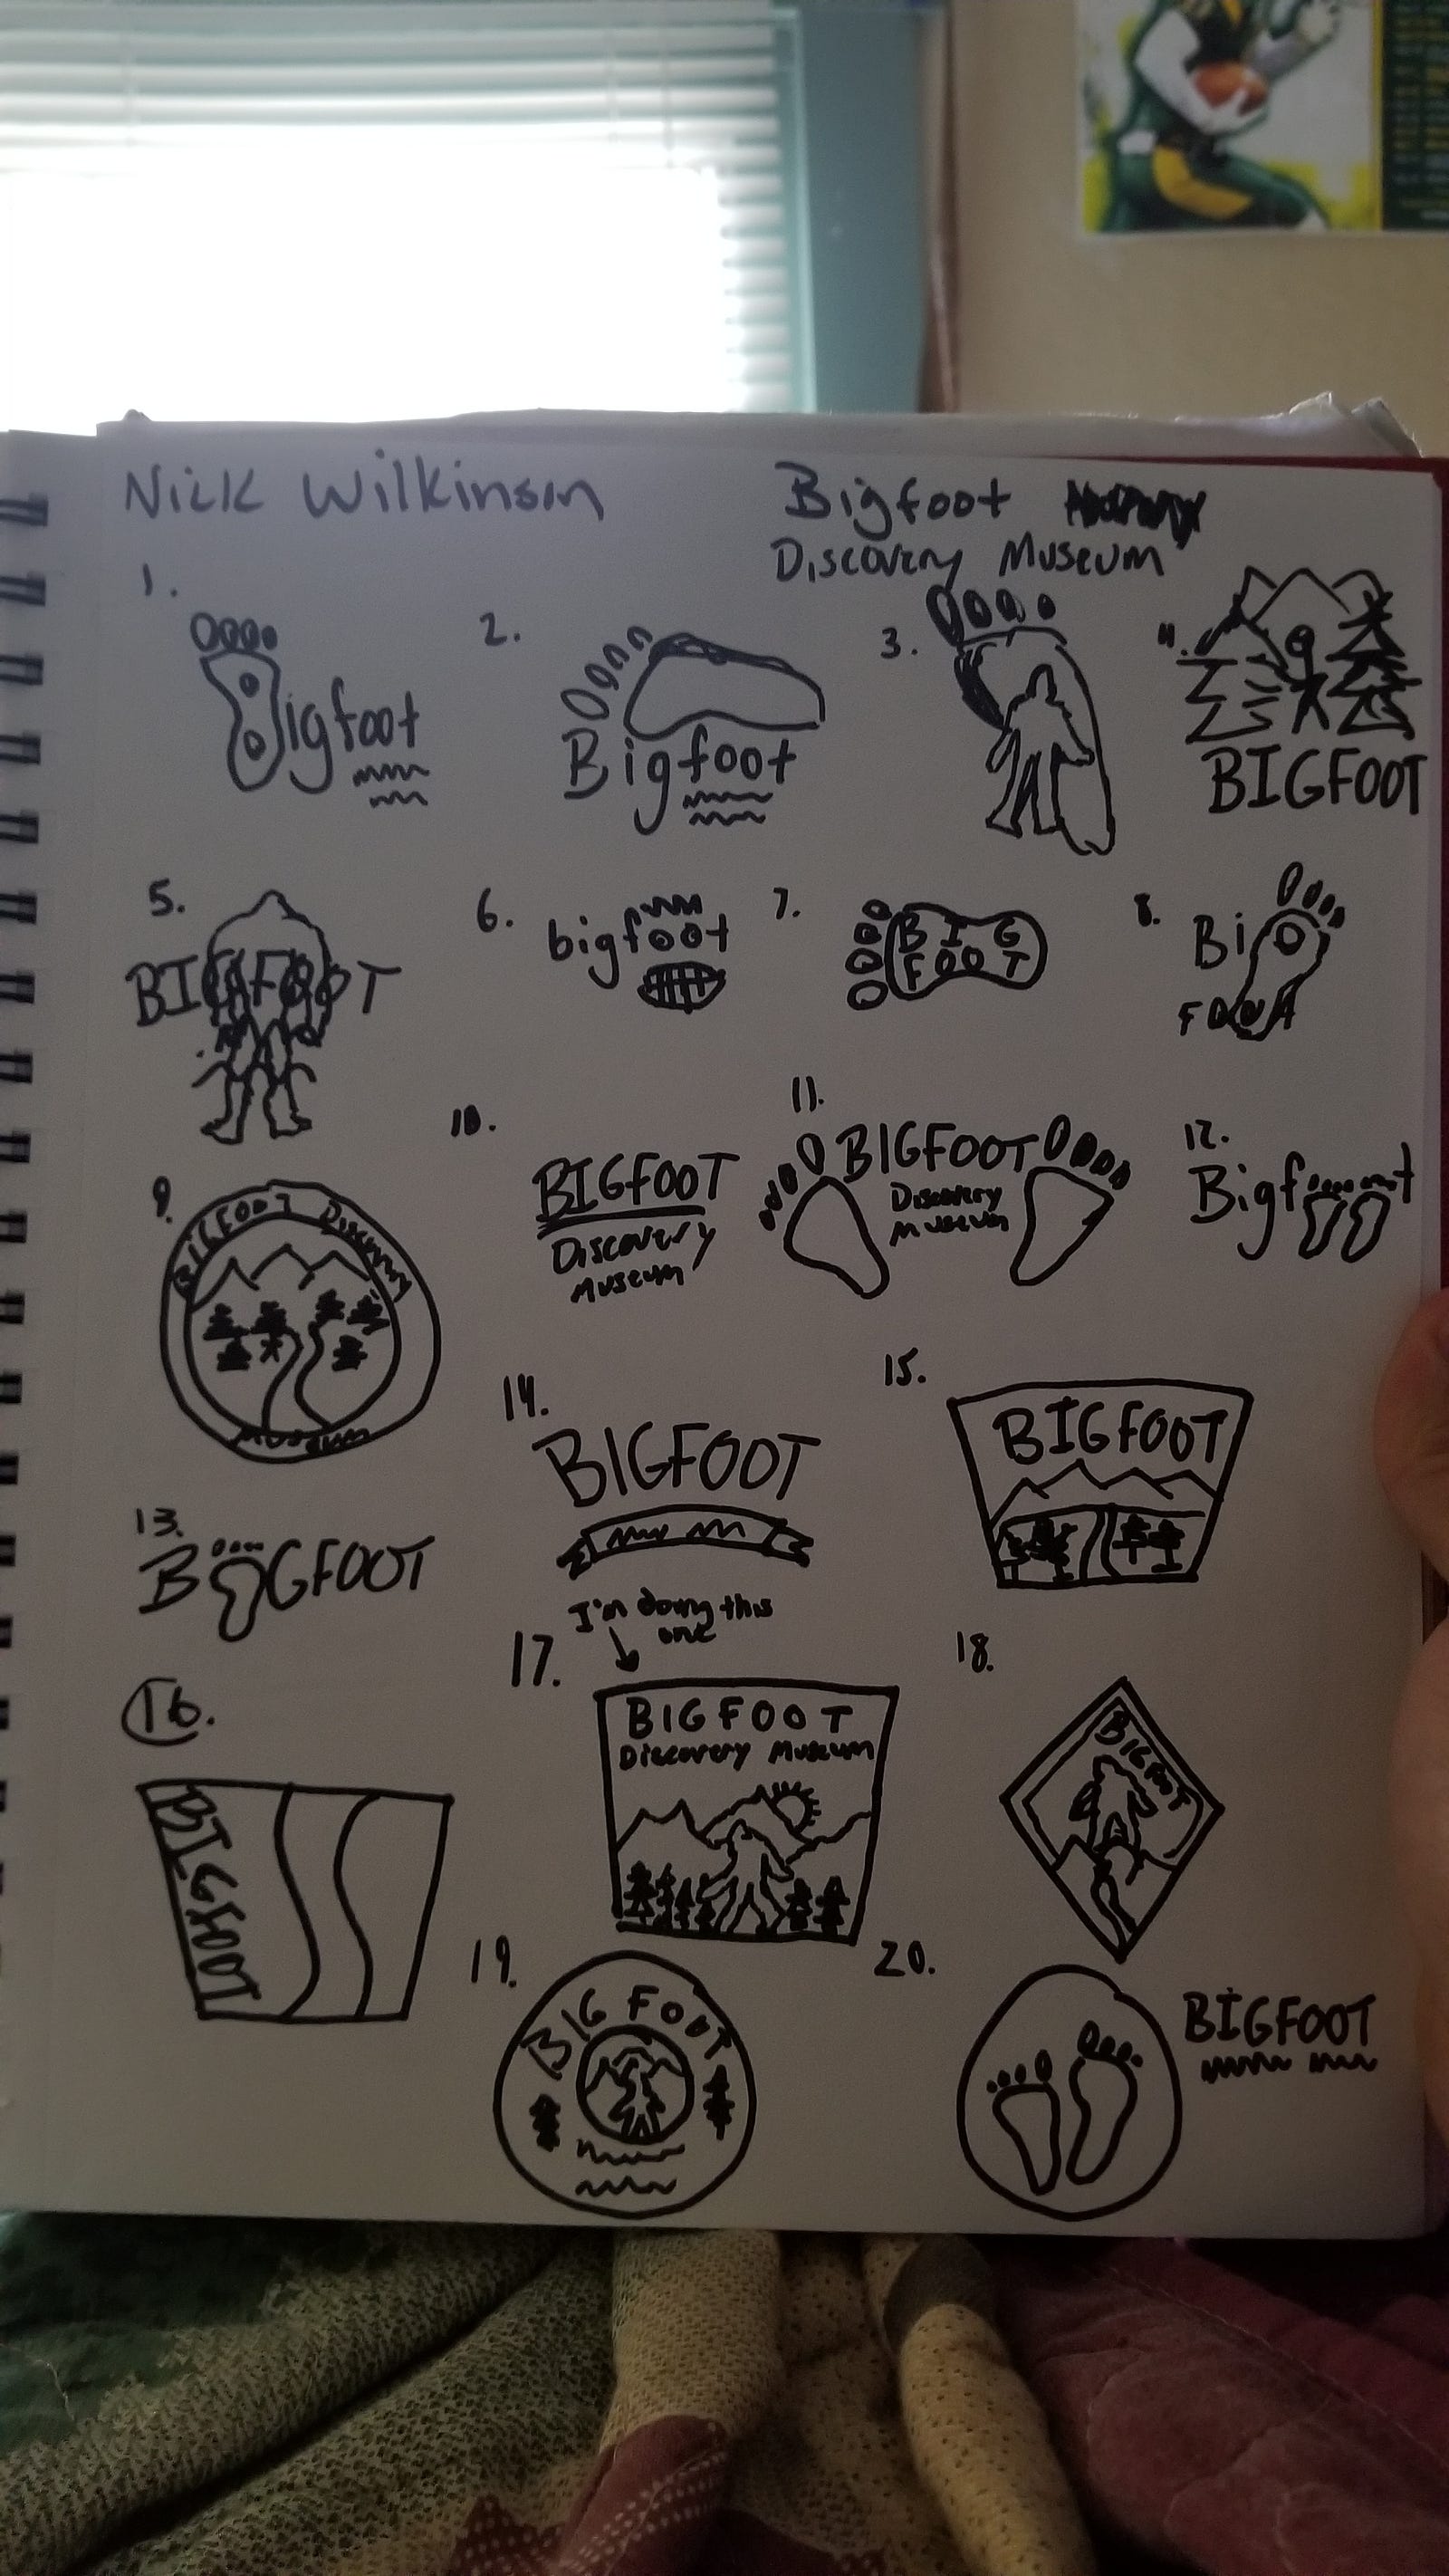 Nick Wilkinson
Bigfoot
Discovery Museum
1.
Bigfoot
2.
Bigfoot
3.
4.
BIGFOOT
5.
BIGFOOT
6.
bigfoot
7.
BIG
FOOT
8.
Big
FOOT
9.
BIGFOOT Discovery
Museum
10.
BIGFOOT
Discovery
Museum
11.
BIGFOOT
Discovery
Museum
12.
Bigfoot
13.
BIGFOOT
14.
BIGFOOT
15.
BIGFOOT
16.
BIGFOOT
17.
I'm doing this
one
BIGFOOT
Discovery Museum
18.
BIGFOOT
19.
BIG FOOT
20.
BIGFOOT